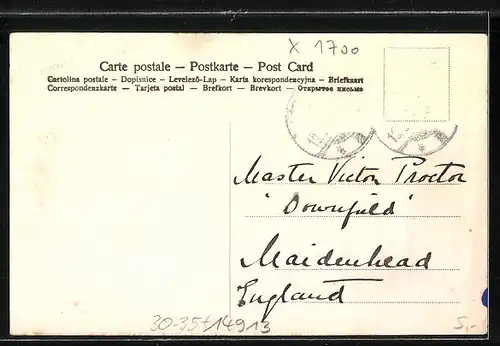 x 1700
Carte postale — Postkarte — Post Card
Cartolina postale — Dopisnice — Levelező-Lap — Karta korespondencyjna — Briefkaart
Correspondenzkarte — Tarjeta postal — Brefkort — Brevkort — Открытое письмо
Master Victor Proctor
"Downfield"
Maidenhead
England
30-35+14913
5,-